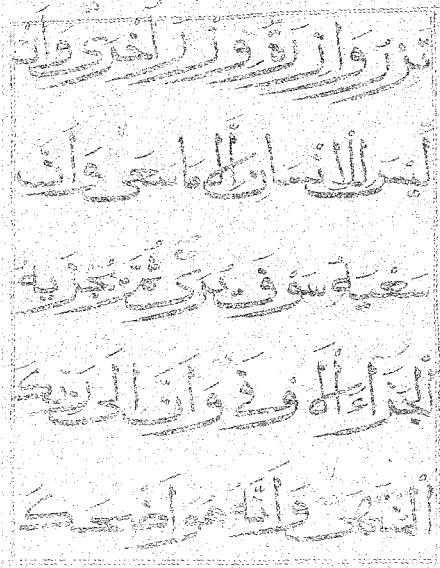 تزر وازرة وزر أخرى وأن
ليس للإنسان إلا ما سعى وأن
سعيه سوف يرى ثم يجزيه
الجزاء الأوفى وأن إلى ربك
المنتهى وأنه هو أضحك